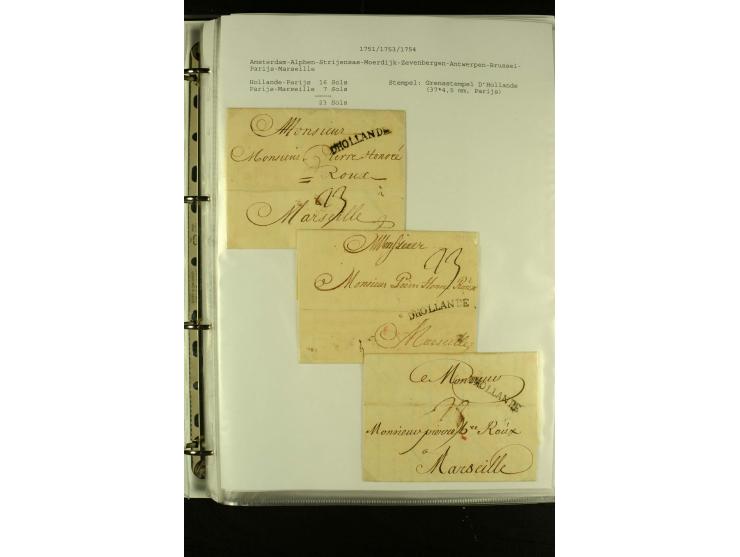 1751/1753/1754
Amsterdam-Alphen-Strijensas-Moerdijk-Zevenbergen-Antwerpen-Brussel-
Parijs-Marseille
Hollande-Parijs 16 Sols Stempel: Grensstempel D'Hollande
Parijs-Marseille 7 Sols (37*4,5 mm, Parijs)
23 Sols
Monsieur
DHOLLANDE
Monsieur Pierre Honoré
Roux
23
à
Marseille
Monsieur
23
Monsieur Pierre Honoré Roux
DHOLLANDE
Marseille
Monsieur
DHOLLANDE
Monsieur pierre Roux
a
Marseille